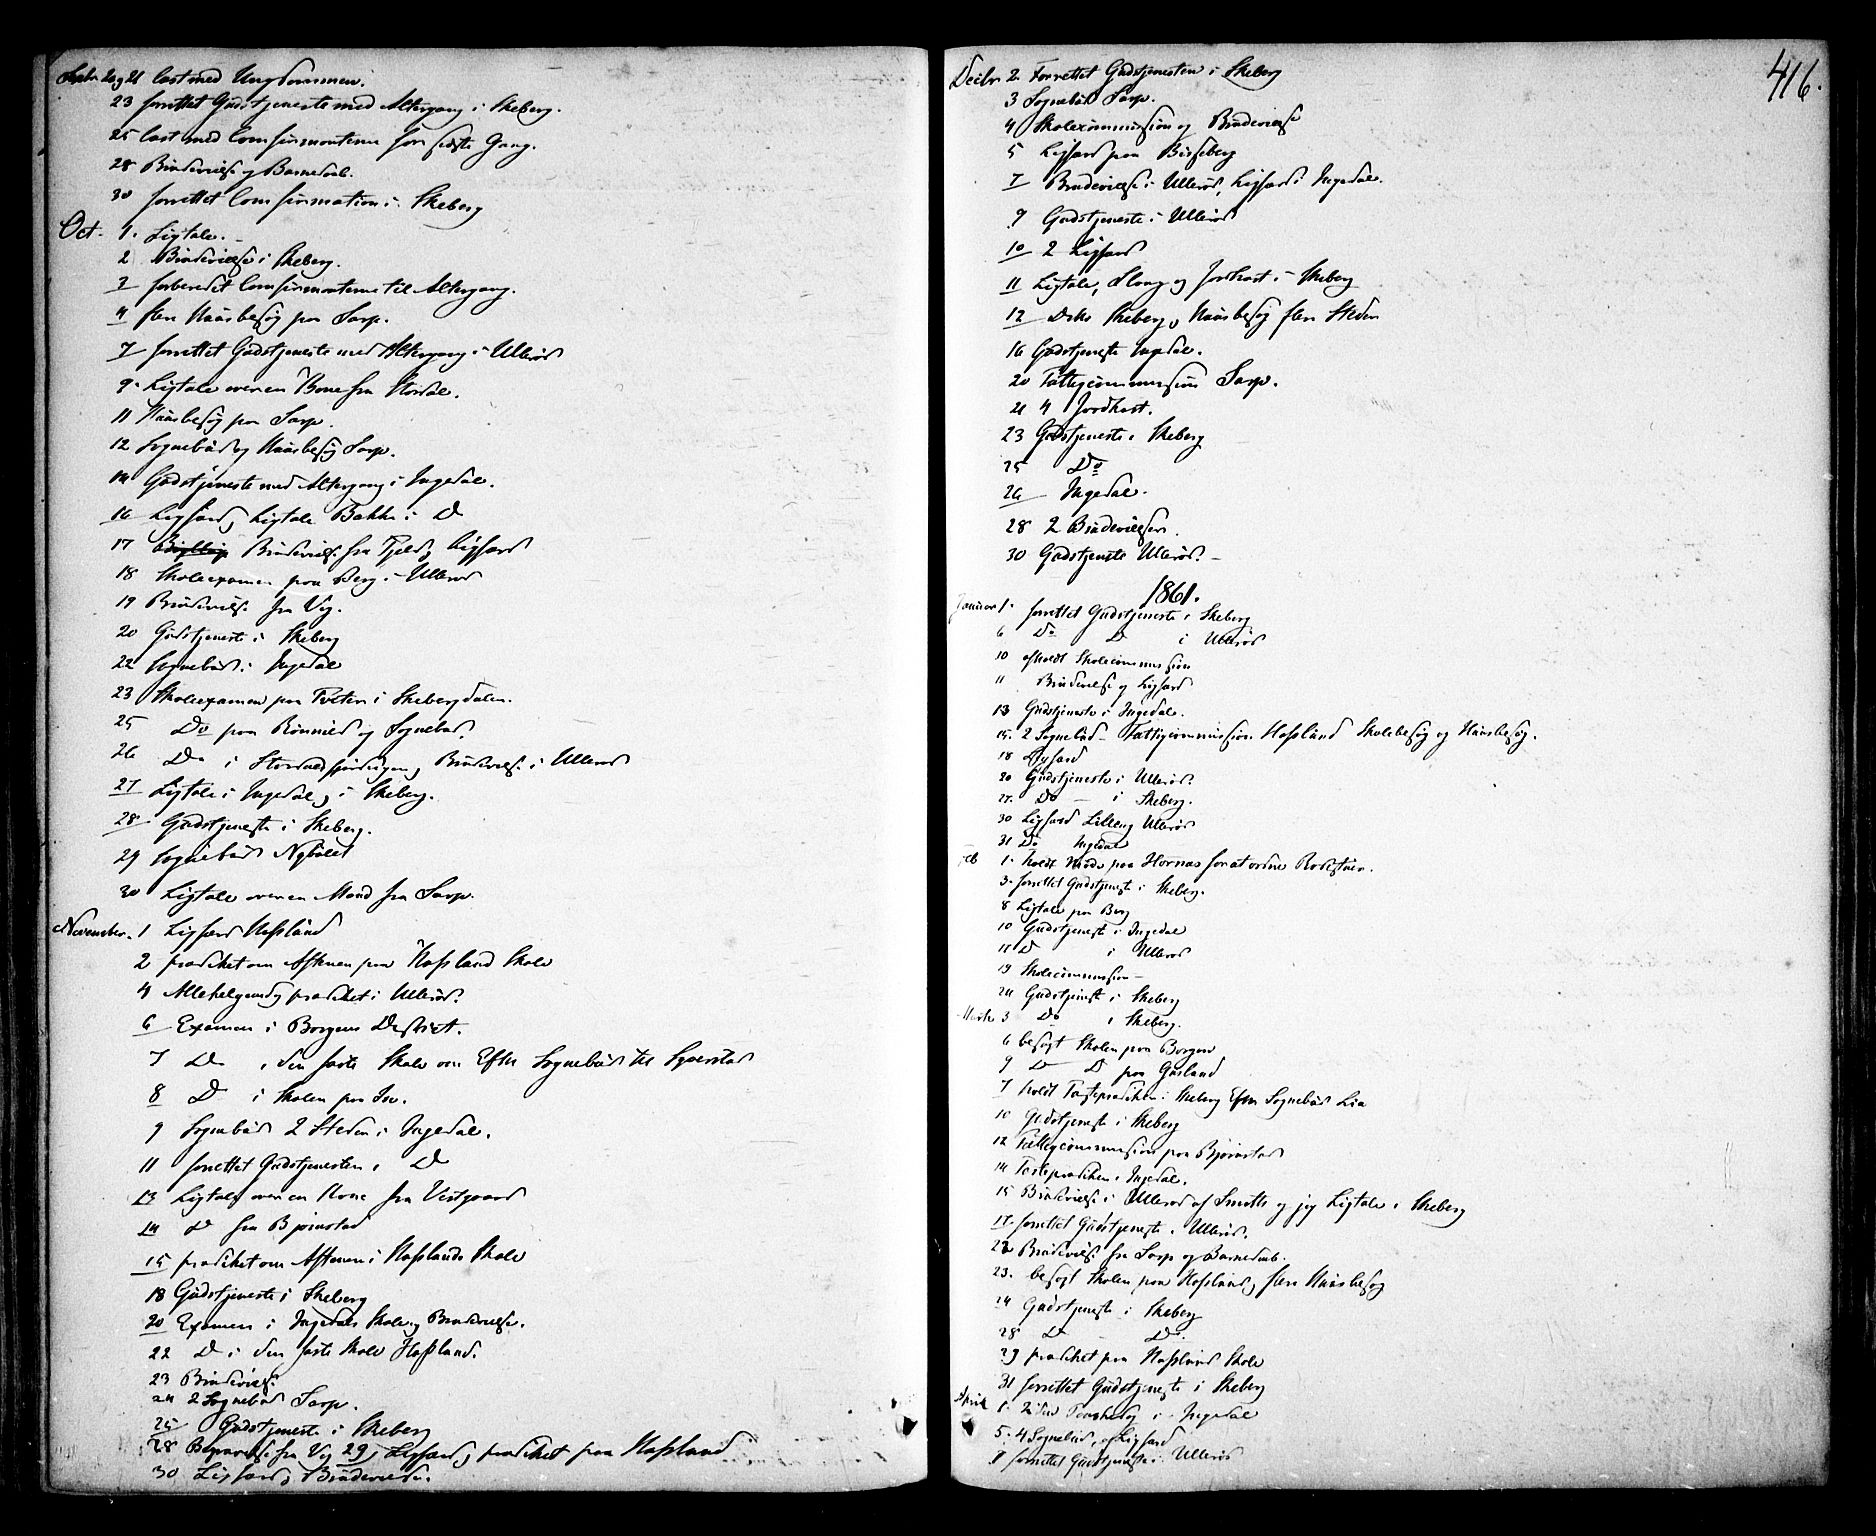 Septbr. 20 og 21 læst med Ungdommen.
23 forrettet Gudstjeneste med Altergang i Skeberg.
25 læst med Comfirmanterne for sidste Gang.
28 Brudevielse og Barnedaab.
30 forrettet Comfirmation i Skeberg
Oct. 1. Ligtale.
2 Brudevielse i Skeberg.
3 forberedet Comfirmanterne til Altergang.
4 flere Huusbesøg paa Sarp.
7 forrettet Gudstjeneste med Altergang i Ullerød
9. Ligtale over en Kone fra
11 Huusbesøg paa Sarp.
12 Sognebud og Huusbesøg Sarp.
14 Gudstjeneste med Altergang i Ingedal.
16 Ligfærd, Ligtale Bakke i Do
17 Brudevielse fra Fjeld, Ligfærd
18 Skoleexamen paa Berg i Ullerød
19 Brudevielse fra Vig.
20 Gudstjeneste i Skeberg
22 Sognebud i Ingedal
23 Skoleexamen paa Tveten i Skebergdalen.
25 Do paa og Sognebud.
26 Do i Brudevielse i Ullerød
27 Ligtale i Ingedal, i Skeberg.
28 Gudstjeneste i Skeberg.
29 Sognebud
30 Ligtale over en Mand fra Sarp.
November. 1 Ligfærd Hafslund
2 prædiket om Aftenen paa Hafslund Skole
4 Allehelgensdg prædiket i Ullerød.
6 Examen i Borgens District.
7 Do i den faste Skole Efter Sognebud til
8 Do i Skolen paa Ise.
9 Sognebud 2 Steder i Ingedal.
11 forrettet Gudstjenesten i Do
13 Ligtale over en Kone fra Vestgaard
14 Do fra Bjørnstad
15 prædiket om Aftenen i Hafslunds Skole
18 Gudstjeneste i Skeberg
20 Examen i Ingedals Skole, Brudevielse.
22 Do i den faste Skole Hafslund.
23 Brudevielse
24 2 Sognebud Sarp.
25 Gudstjeneste i Skeberg
28 Begravelse fra Vig 29, Ligfærd, prædiket paa Hafslund
30 Ligfærd, Brudevielse.
416.
Decbr. 2. Forrettet Gudstjenesten i Skeberg
3 Sognebud Sarp.
4 Skolecommission og Brudevielse
5 Ligfærd paa
7 Brudevielse i Ullerød, Ligfærd i Ingedal.
9 Gudstjeneste i Ullerød
10 2 Ligfærd
11 Ligtale, og Jordkast i Skeberg
12 Skeberg, Huusbesøg flere Steder
16 Gudstjeneste Ingedal.
20 Fattigcommission Sarp.
21 4 Jordkast.
23 Gudstjeneste i Skeberg
25 Do
26 Ingedal.
28 2 Brudevielser.
30 Gudstjeneste Ullerød.
1861.
Januar 1. forrettet Gudstjeneste i Skeberg
6 Do Do i Ullerød
10 afholdt Skolecommission
11 Brudevielse og Ligfærd
13 Gudstjeneste i Ingedal.
15. 2 Sognebud Fattigcommission Hafslund Skolebesøg og Huusbesøg.
18 Ligfærd
20 Gudstjeneste i Ullerød.
27. Do i Skeberg.
30 Ligfærd Ullerød
31 Do Ingedal
Feb 1. holdt Møde paa Hornæs for at ordne
3. forrettet Gudstjeneste i Skeberg.
8 Ligtale paa Berg
10 Gudstjeneste i Ingedal
17 Do i Ullerød
19 Skolecommission
24 Gudstjeneste i Skeberg
Marts 3 Do i Skeberg.
6 besøgt Skolen paa Borgen
9 Do Do paa
7 holdt Fasteprædiken i Skeberg Efter Sognebud Lia
10 Gudstjeneste i Skeberg
12 Fattigcommission paa Bjørnstad
14 Fasteprædiken i Ingedal.
15 Brudevielse i Ullerød af og jeg Ligtale i Skeberg
17. forrettet Gudstjeneste i Ullerød.
22 Brudevielse fra Sarp og Barnedaab.
23. besøgt Skolen paa Hafslund, flere Huusbesøg
24 Gudstjeneste i Skeberg
28 Do Do.
29 prædiket paa Hafslund Skole
31 forrettet Gudstjeneste i Skeberg
April 1. 2den Paaskedag i Ingedal
5. 4 Sognebud, og Ligfærd
7 forrettet Gudstjeneste i Ullerød